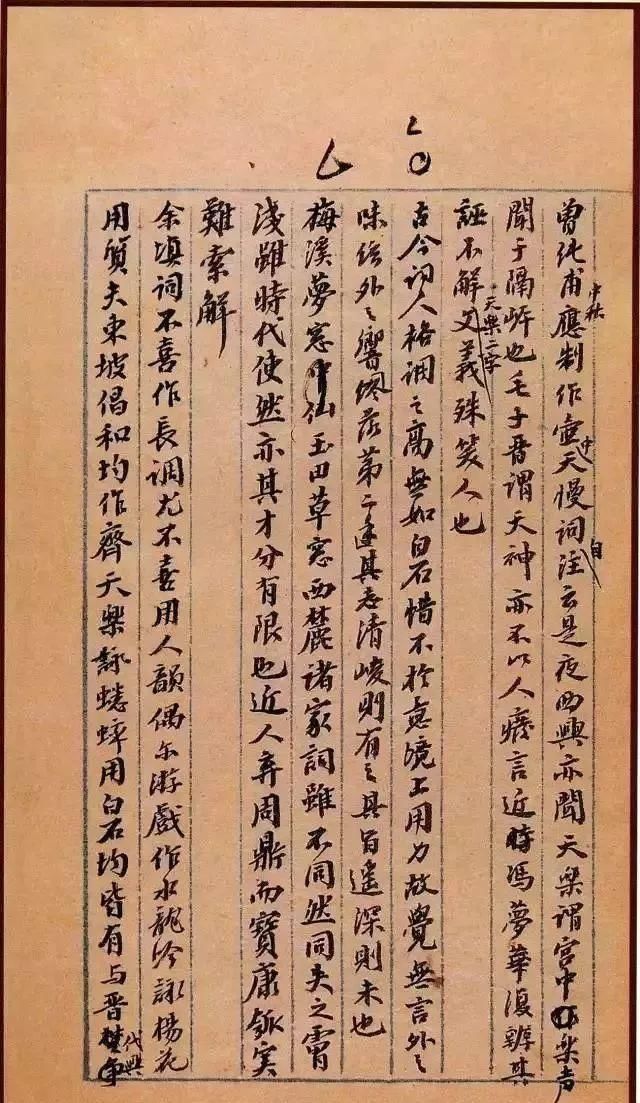 曾纯甫中秋應制作壺中天慢詞自注云是夜西興亦聞天樂謂宮中樂声
聞于隔岸也毛子晋謂天神亦不以人癈言近時馮夢華復辨其
誣不解天樂二字文義殊笑人也
古今词人格调之高無如白石惜不於意境上用力故覺無言外之
味絃外之響终落第二其志清峻則有之其旨遥深則未也
梅溪夢窓中仙玉田草窓西麓諸家詞雖不同然同失之膚
淺雖時代使然亦其才分有限也近人弃周鼎而寶康瓠实
難索解
余填词不喜作長调尤不喜用人韻偶尔游戲作水龍吟詠楊花
用質夫東坡倡和均作齊天樂詠蟋蟀用白石均皆有与晋代興